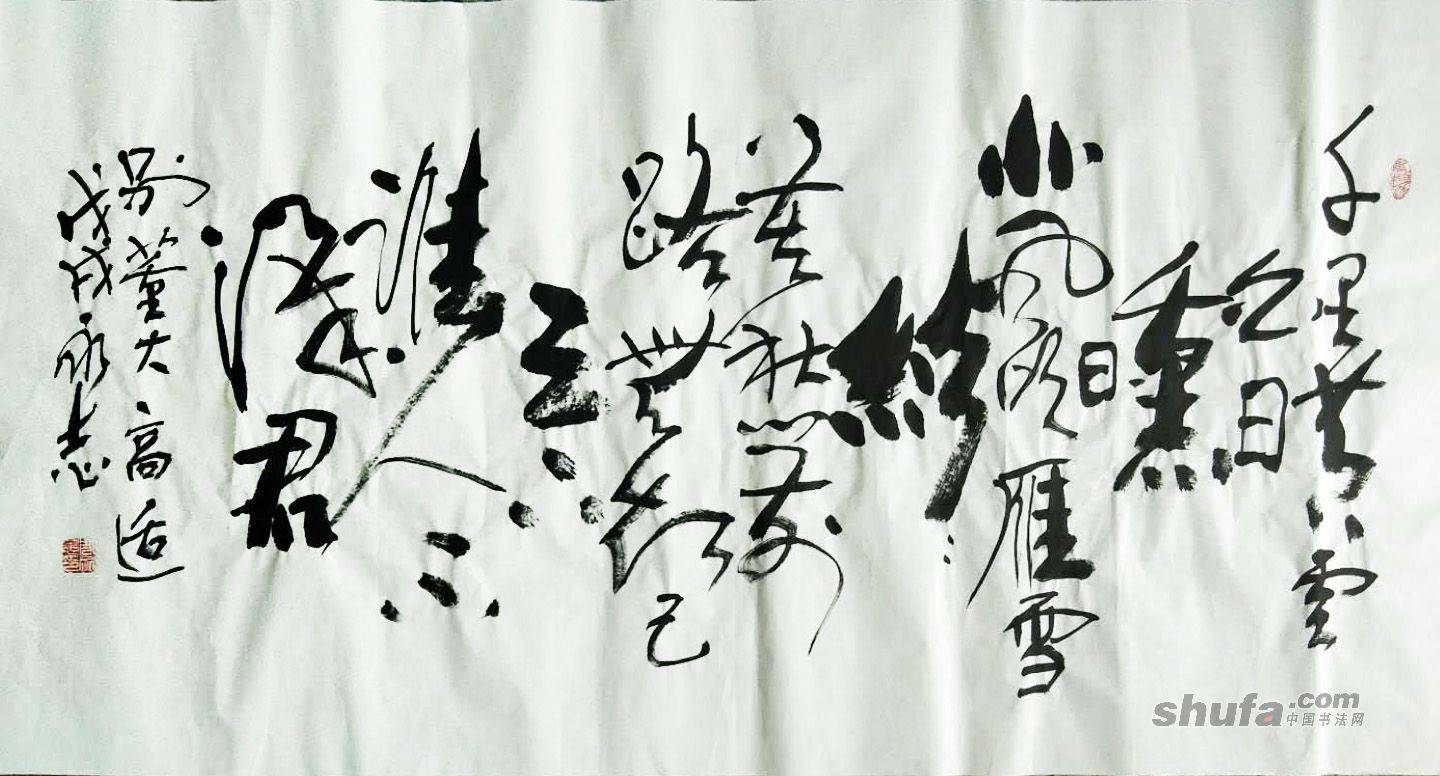 千里黄雲
白日
曛
北风吹雁雪
纷纷
莫愁前
路無知己
天下
谁人不
识君
别董大高适
戊戌永志
shufa.com
中国书法网